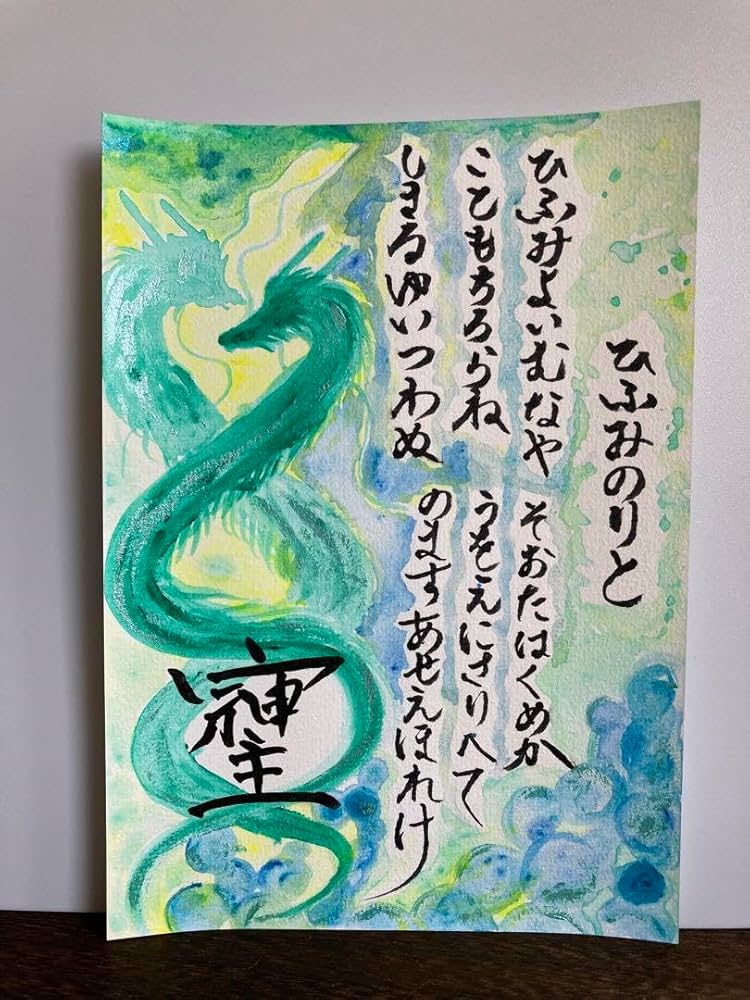 ひふみのりと
ひふみよいむなや そおたはくめか
こともちろらね うをえにさりへて
しきるゆいつわぬ のますあせえほれけ